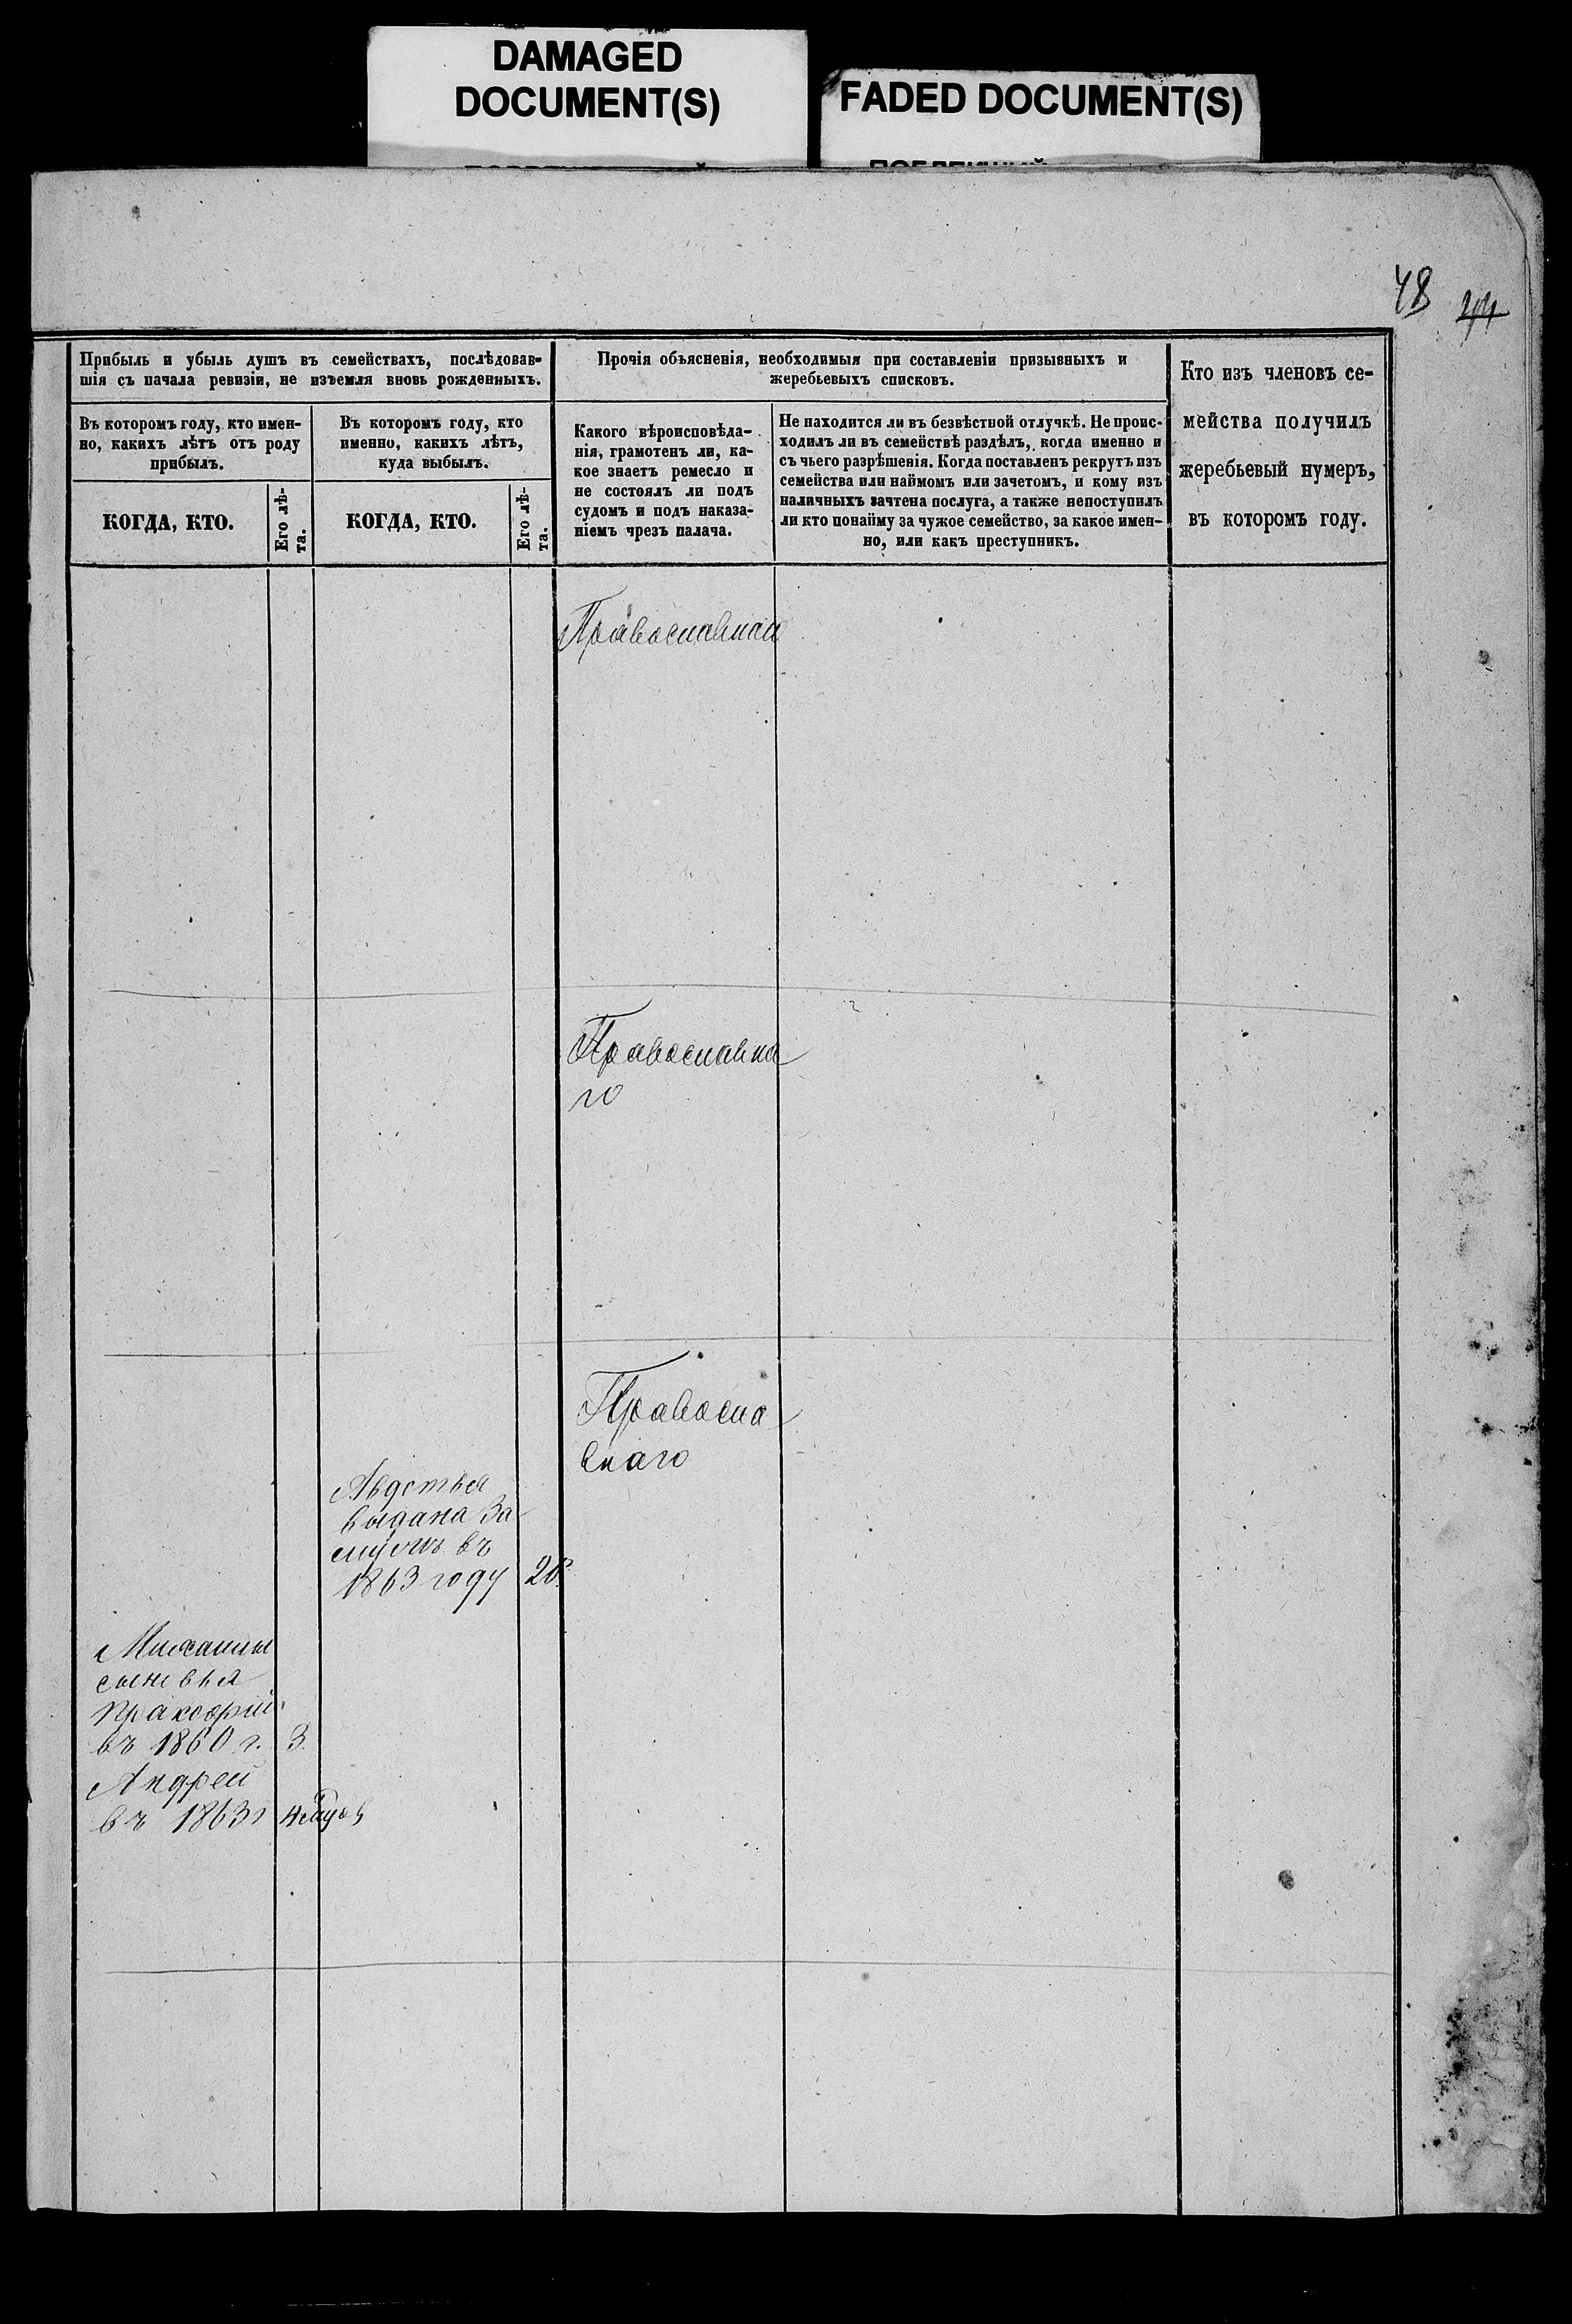 DAMAGED
DOCUMENT(S)
FADED DOCUMENT(S)
48 44
Прибыль и убыль душъ въ семействахъ, послѣдовав-
шія съ начала ревизіи, не изъемля вновь рожденныхъ.
Въ которомъ году, кто имен-
но, какихъ лѣтъ отъ роду
прибылъ.
КОГДА, КТО.
Его лѣ-
та.
Въ которомъ году, кто
именно, какихъ лѣтъ,
куда выбылъ.
КОГДА, КТО.
Его лѣ-
та.
Прочія объясненія, необходимыя при составленіи призывныхъ и
жеребьевыхъ списковъ.
Какого вѣроисповѣда-
нія, грамотенъ ли, ка-
кое знаетъ ремесло и
не состоялъ ли подъ
судомъ и подъ наказа-
ніемъ чрезъ палача.
Не находится ли въ безвѣстной отлучкѣ. Не проис-
ходилъ ли въ семействѣ раздѣлъ, когда именно и
съ чьего разрѣшенія. Когда поставленъ рекрутъ изъ
семейства или наймомъ или зачетомъ, и кому изъ
наличныхъ зачтена послуга, а также непоступилъ
ли кто понайму за чужое семейство, за какое имен-
но, или какъ преступникъ.
Кто изъ членовъ се-
мейства получилъ
жеребьевый нумеръ,
въ которомъ году.
Православна
го
Правосла
внаго
выдана За
мужъ въ
1863 году 20.
сыновья
въ 1860 г. 3.
Андрей
въ 1863 г